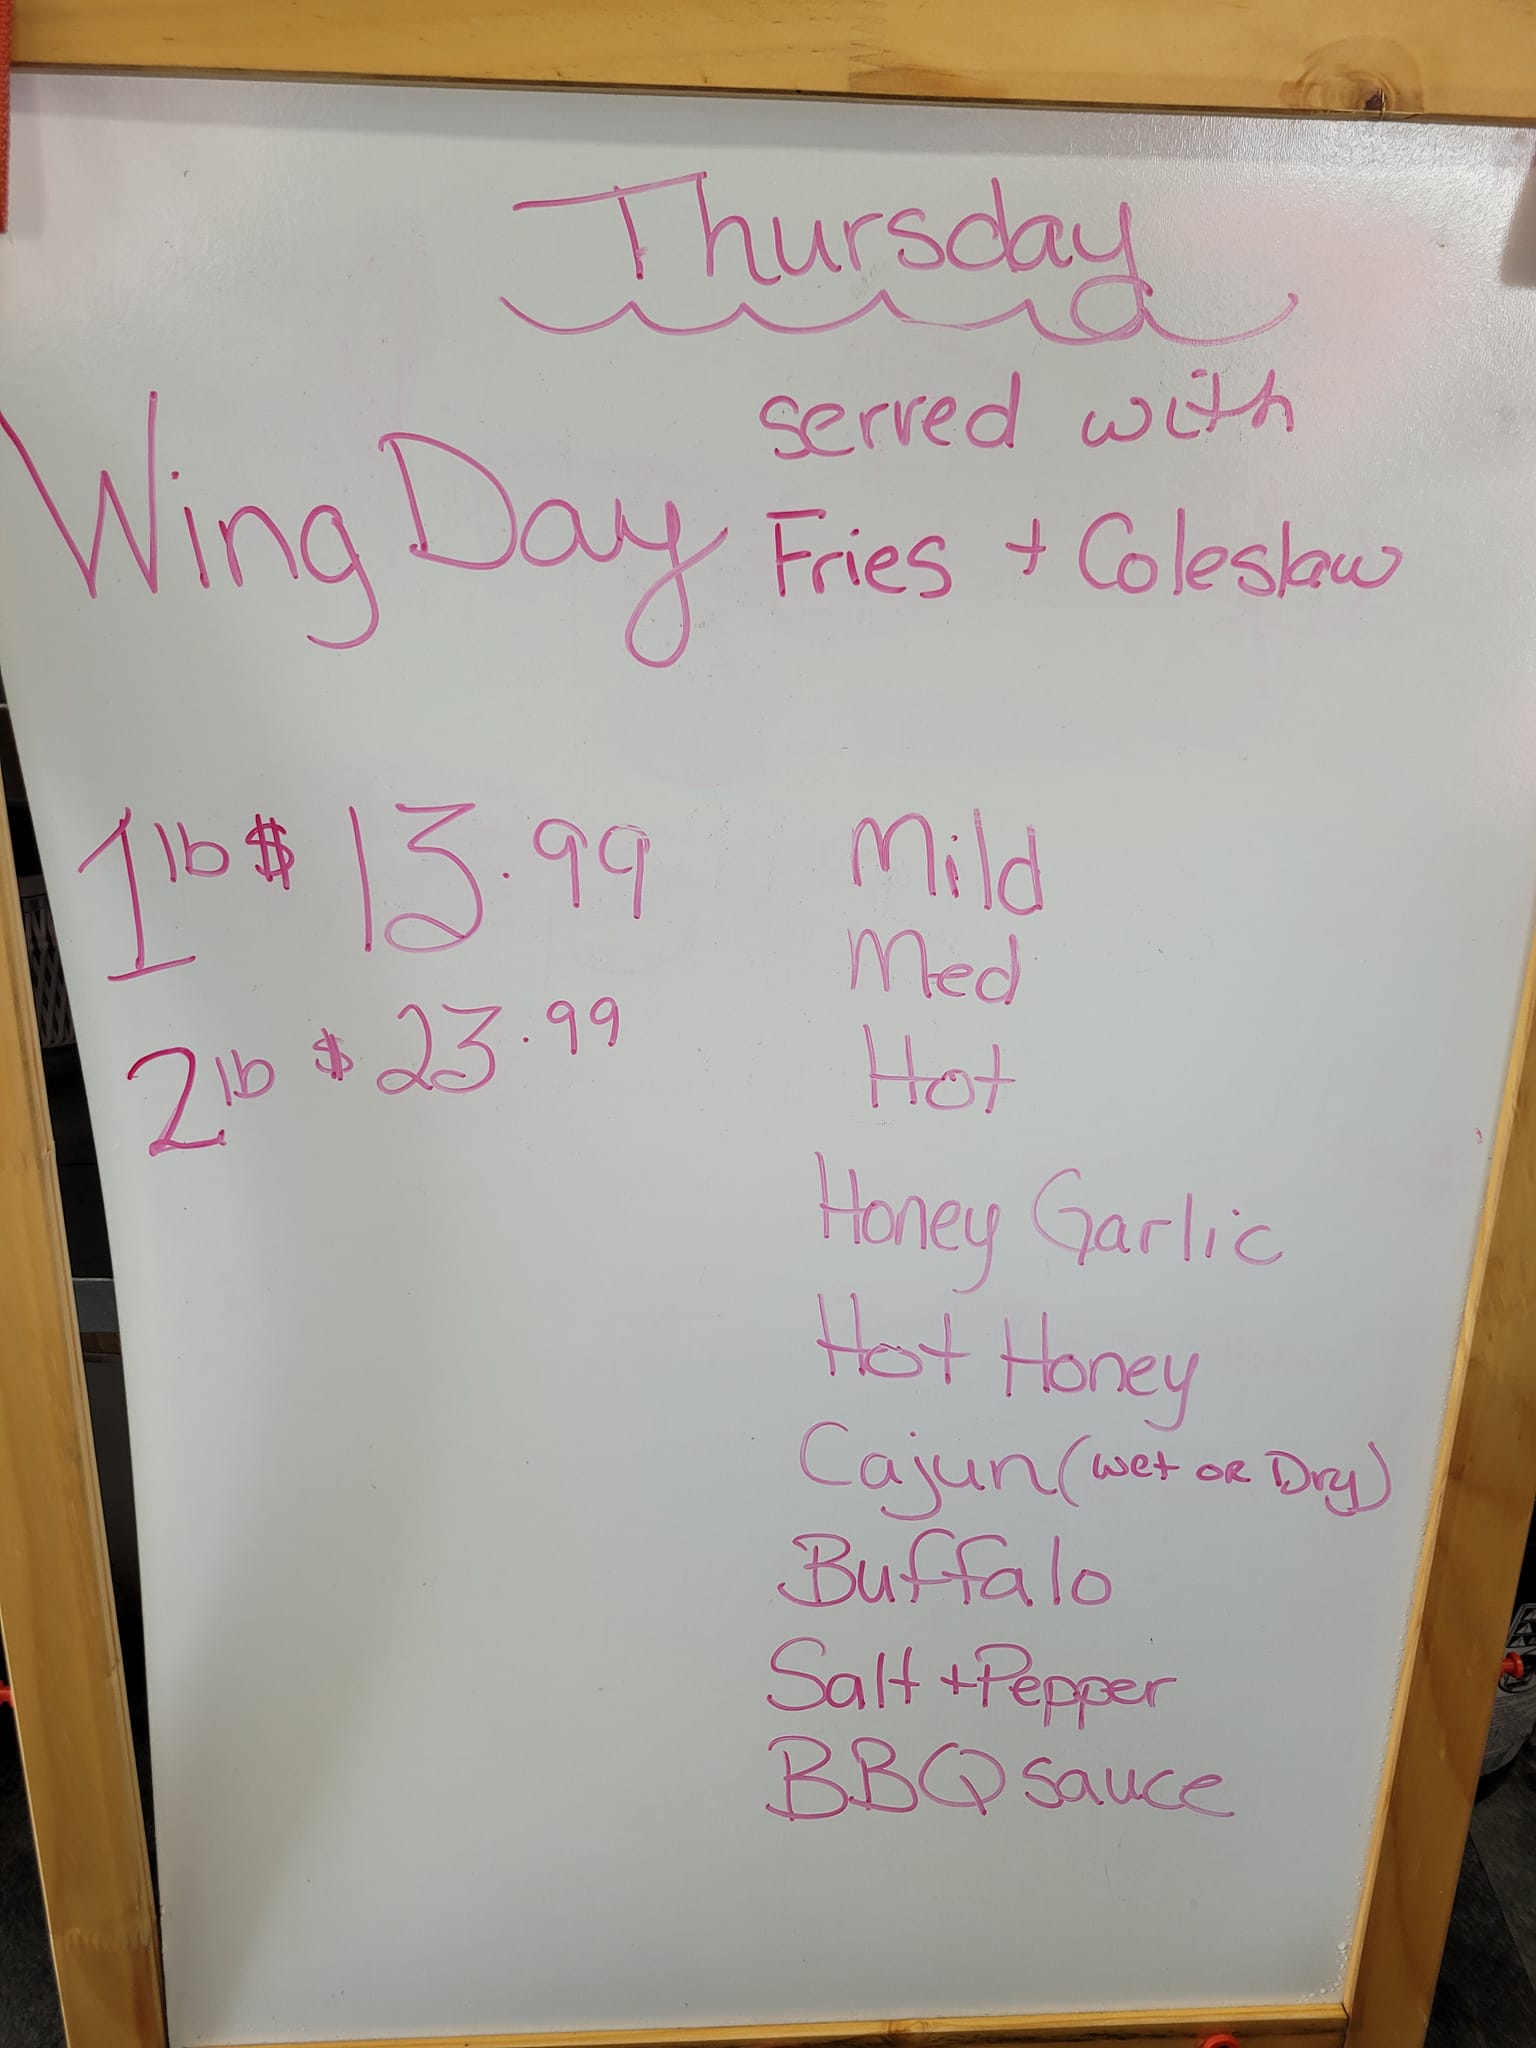 Thursday
served with
Wing Day Fries + Coleslaw
1 lb $ 13.99
2 lb $ 23.99
Mild
Med
Hot
Honey Garlic
Hot Honey
Cajun (wet or Dry)
Buffalo
Salt + Pepper
BBQ sauce